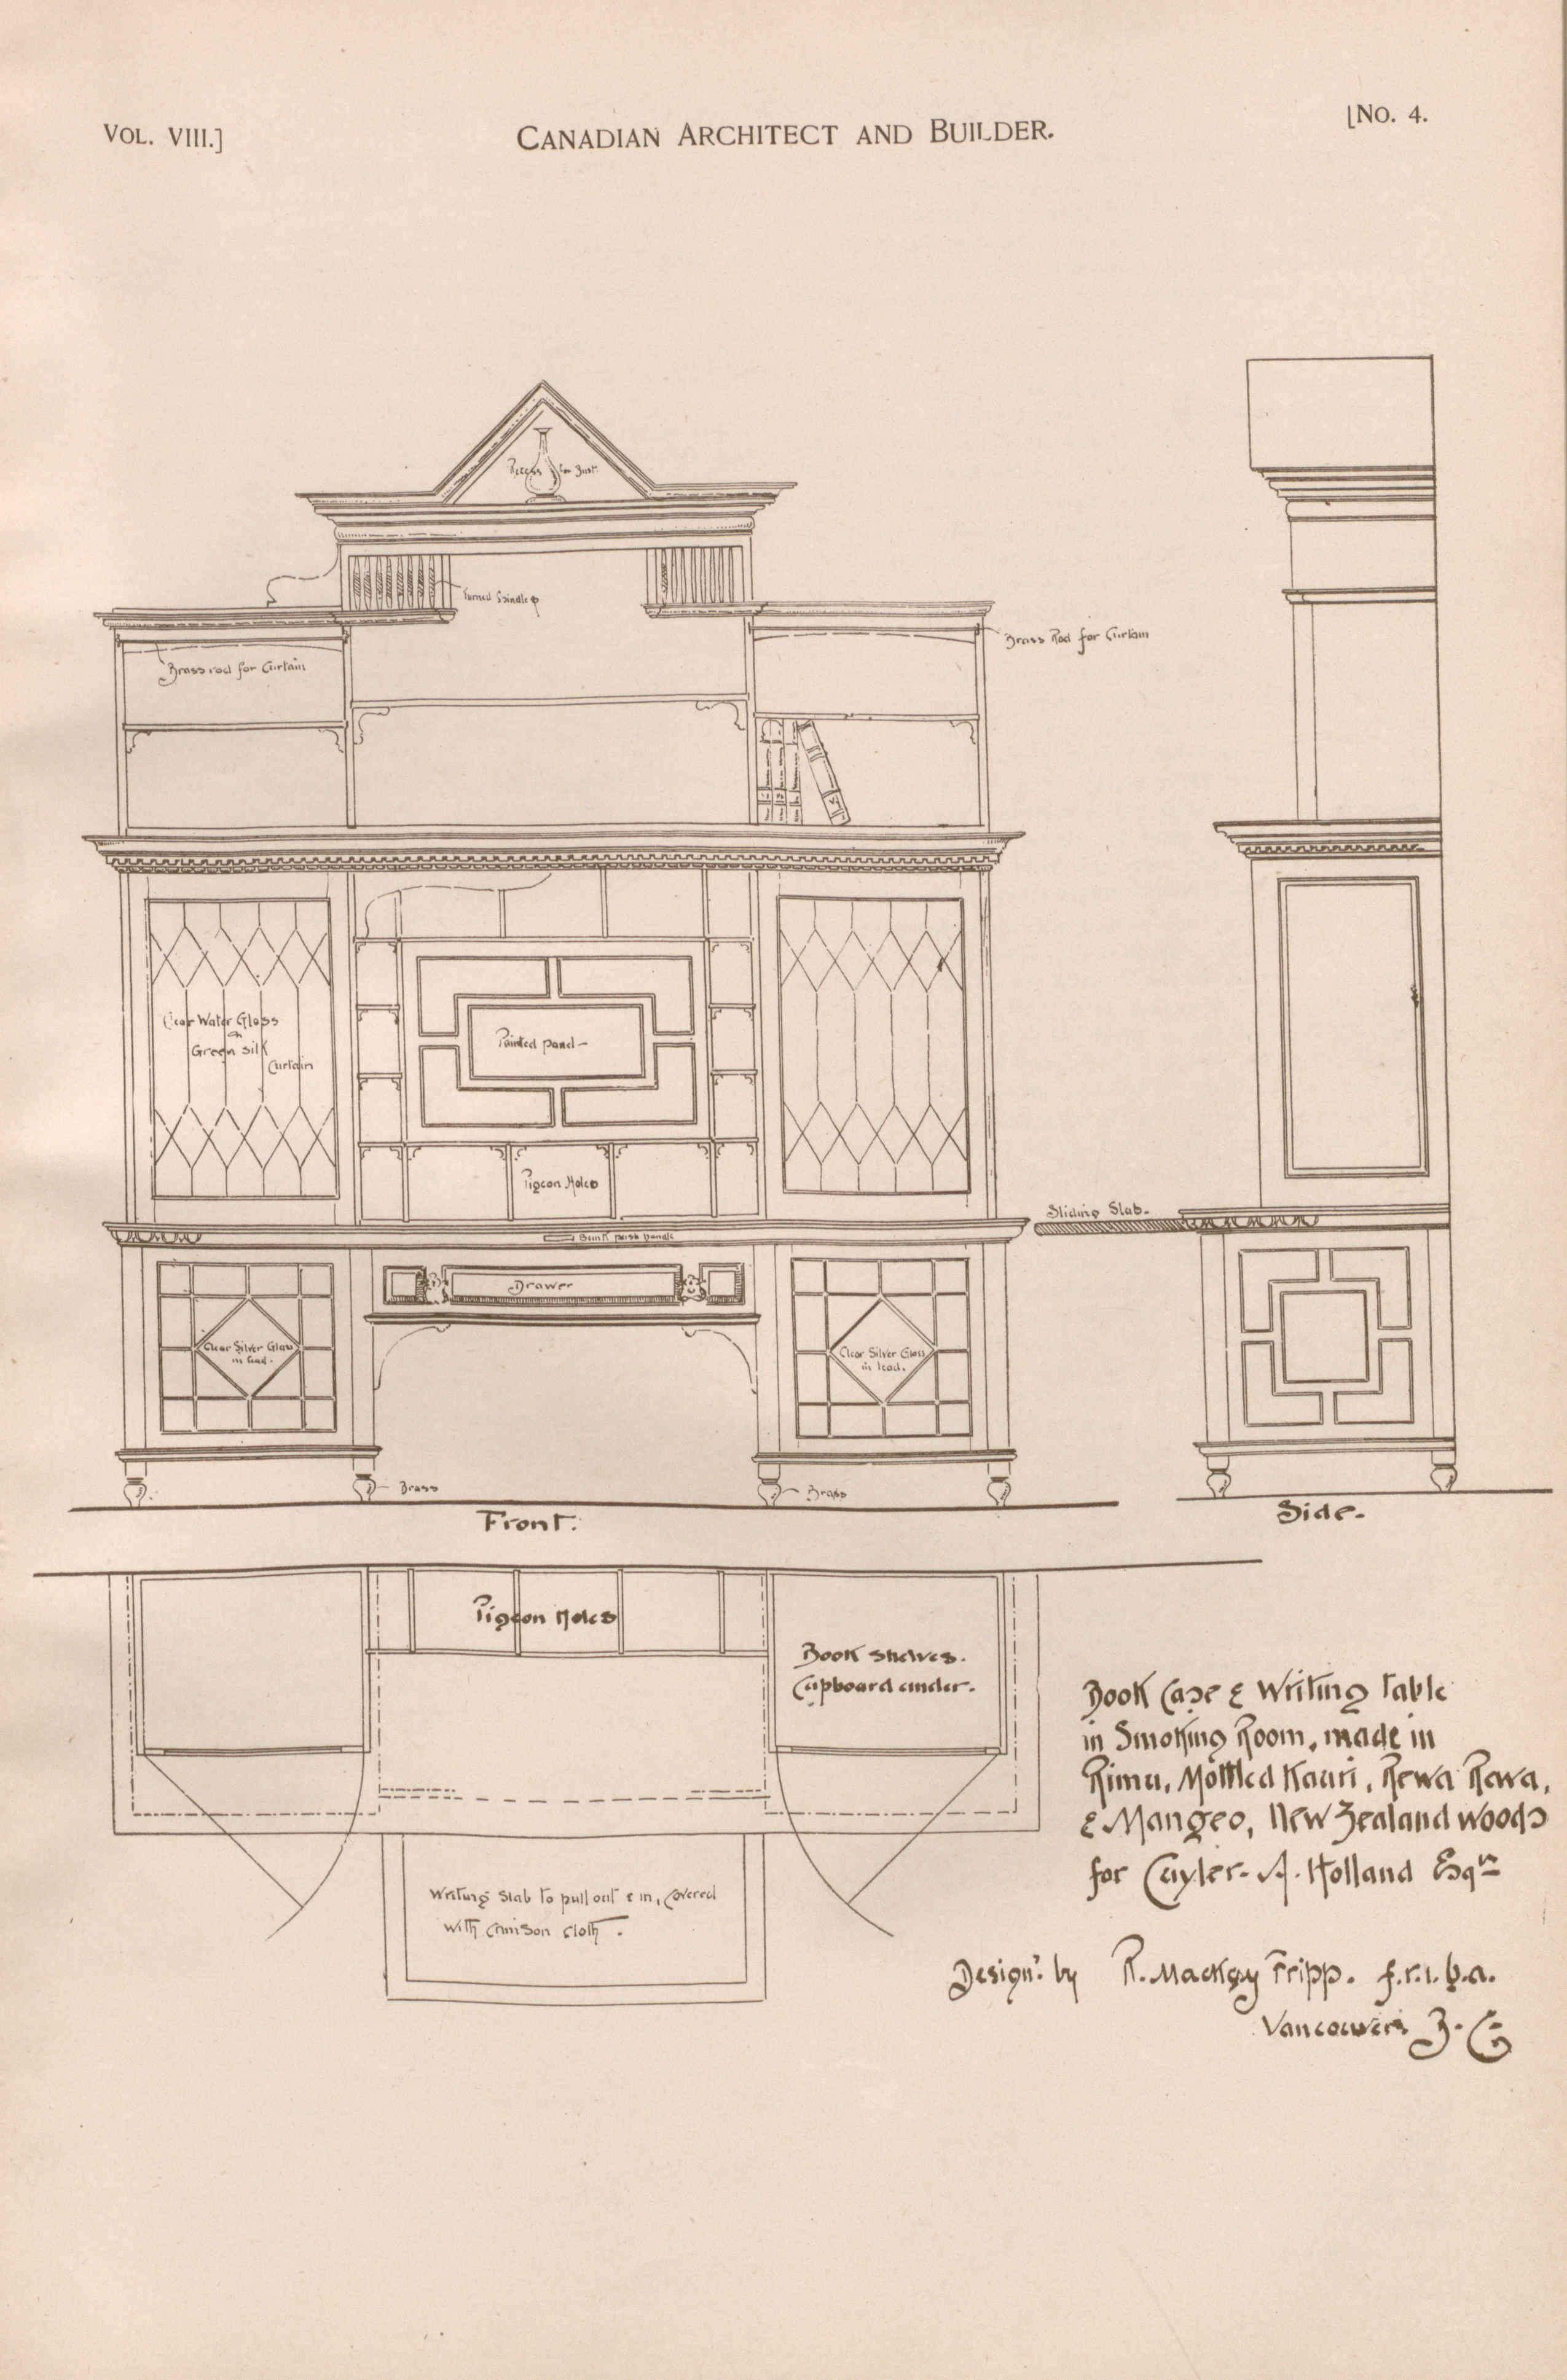 VOL. VIII.]
CANADIAN ARCHITECT AND BUILDER.
[NO. 4.
Recess for Bust.
Turned Spindles
Brass rod for Curtain
Brass Rod for Curtain
Clear Water Glass
on
Green Silk
Curtain
Painted panel
Pigeon Holes
Sliding Slab.
Sunk push handle
Drawer
Clear Silver Glass
in lead.
Clear Silver Glass
in lead.
Brass
Brass
Front.
Side.
Pigeon Holes
Book shelves.
Cupboard under.
Writing slab to pull out & in, covered
with crimson cloth.
Book Case & Writing table
in Smoking Room, made in
Rimu, Mottled Kauri, Rewa Rewa,
& Mangeo, New Zealand woods
for Cuyler. A. Holland Esqre
Design'. by R. Mackay Fripp. f.r.i.b.a.
Vancouver B. C.